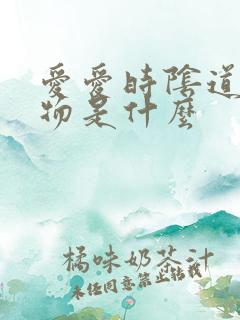 愛愛時陰道
物是什麼
橘味奶茶汁
未任同意禁止轉載